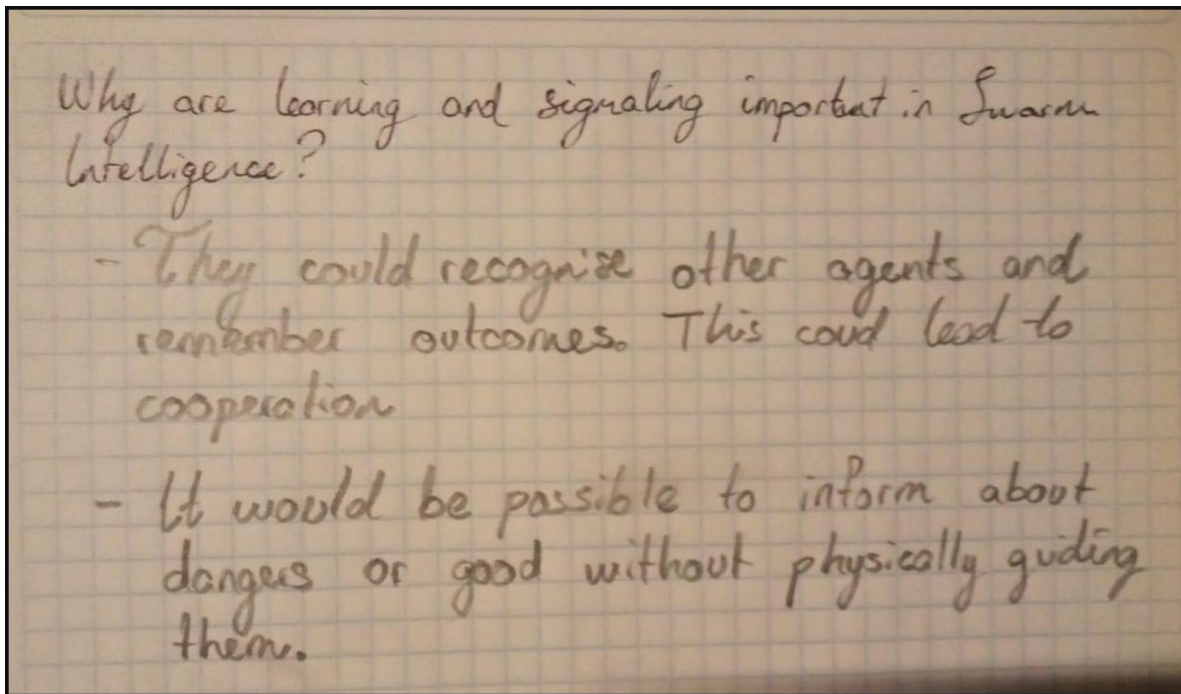 Why are learning and signaling important in Swarm
Intelligence?
- They could recognize other agents and
remember outcomes. This coud lead to
cooperation
- It would be possible to inform about
dangers or good without physically guiding
them.